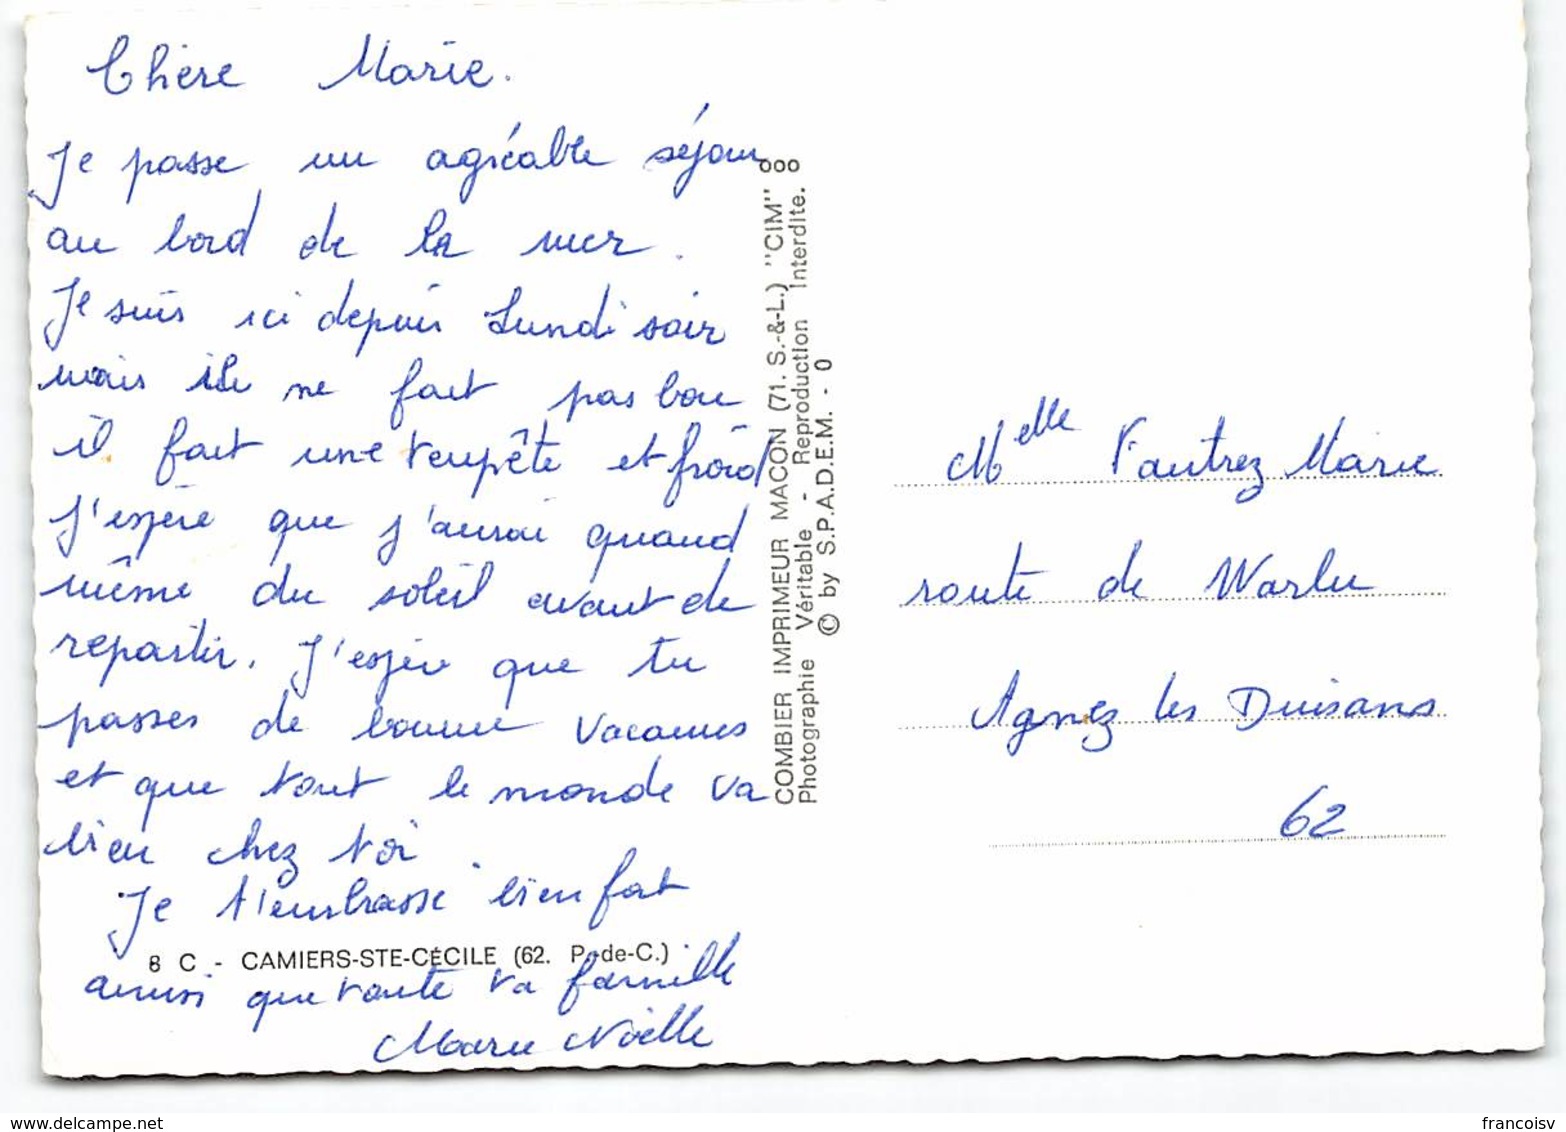 Chère Marie.
Je passe un agréable séjour
au bord de la mer.
Je suis ici depuis Lundi soir
mais il ne fait pas bon
il fait une tempête et froid
J'espère que j'aurai quand
même du soleil avant de
repartir. J'espère que tu
passes de bonne vacances
et que tout le monde va
bien chez toi.
Je t'embrasse bien fort
8 C - CAMIERS-STE-CÉCILE (62. P.-de-C.)
ainsi que toute ta famille
Marie Noëlle
COMBIER IMPRIMEUR MACON (71. S.-&-L.) "CIM"
Photographie Véritable - Reproduction Interdite.
© by S.P.A.D.E.M. - 0
Melle Vautrez Marie
route de Warlu
Agnez les Duisans
62
delcampe.net
francoisv